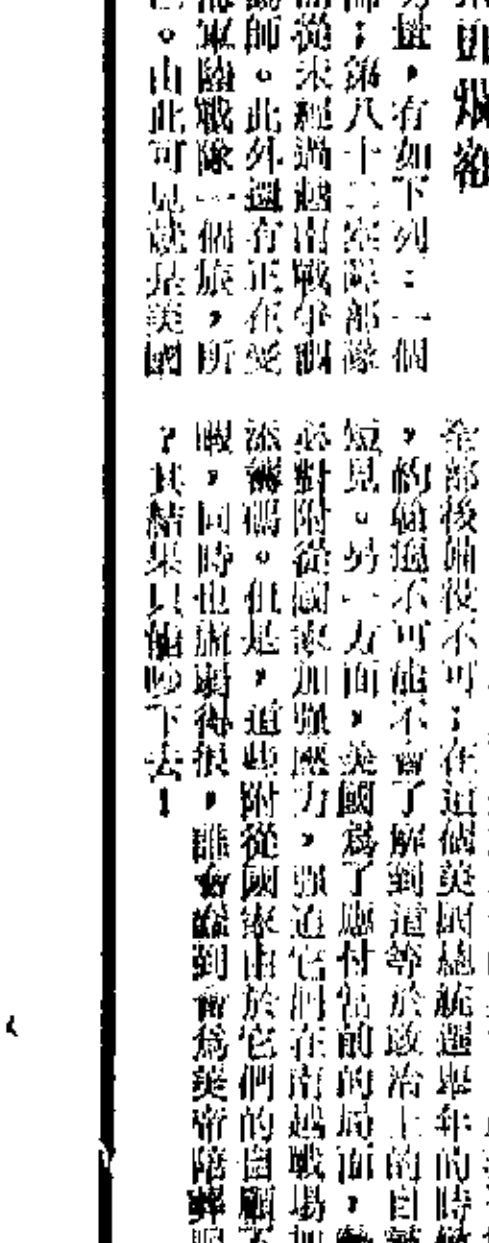 力量,有如下列:一個
部;第八十二空降部隊
從未經過越南戰爭調
師。此外還有正在受
軍陸戰隊一個旅,所
。由此可見就是美國
全部後備役不可;在這個美國總統選舉年的時
,約翰遜不可能不會了解到這等於政治上的自
短見。另一方面,美國爲了應付當前的局面,
必對附從國家加強壓力,強迫它們在南越戰場加
添籌碼。但是,這些附從國家由於它們的自顧不
暇,同時也虛弱得很,誰會蠢到會爲美帝陪葬
?其結果只能吵下去!